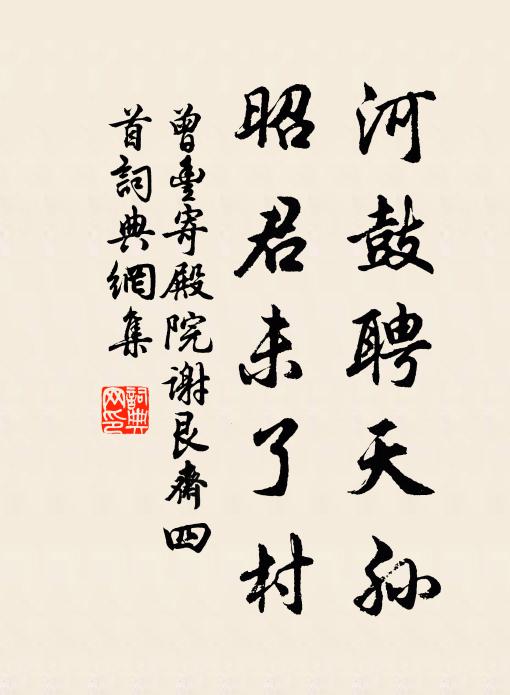 河鼓聘天孫
昭君未了村
曾豐寄殿院謝艮齋四
首詞典網集
詞典
网印